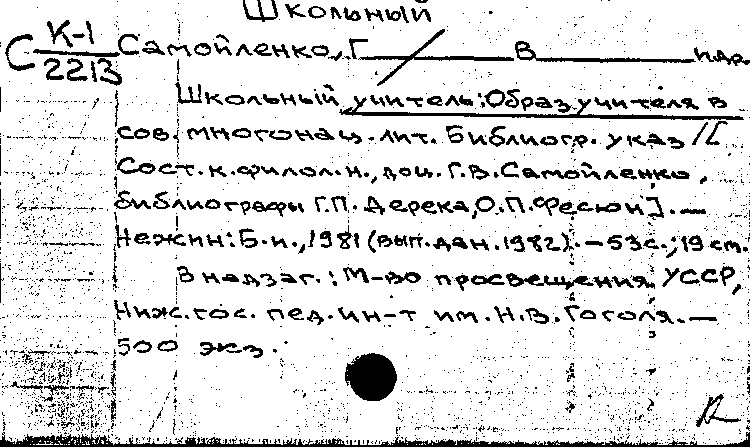 Школьный
С К-1/2213 Самойленко, Г В и др.
Школьный учитель: Образ учителя в
сов. многонац. лит. Библиогр. указ / [
Сост. к. филол. н., доц. Г.В. Самойленко,
библиографы Г.П. Дерека, О.П. Фесюн]. —
Нежин: Б.и., 1981 (вып. дан. 1982). — 53с.; 19 см.
В надзаг.: М-во просвещения УССР,
Ниж. гос. пед. ин-т им. Н.В. Гоголя. —
500 экз.